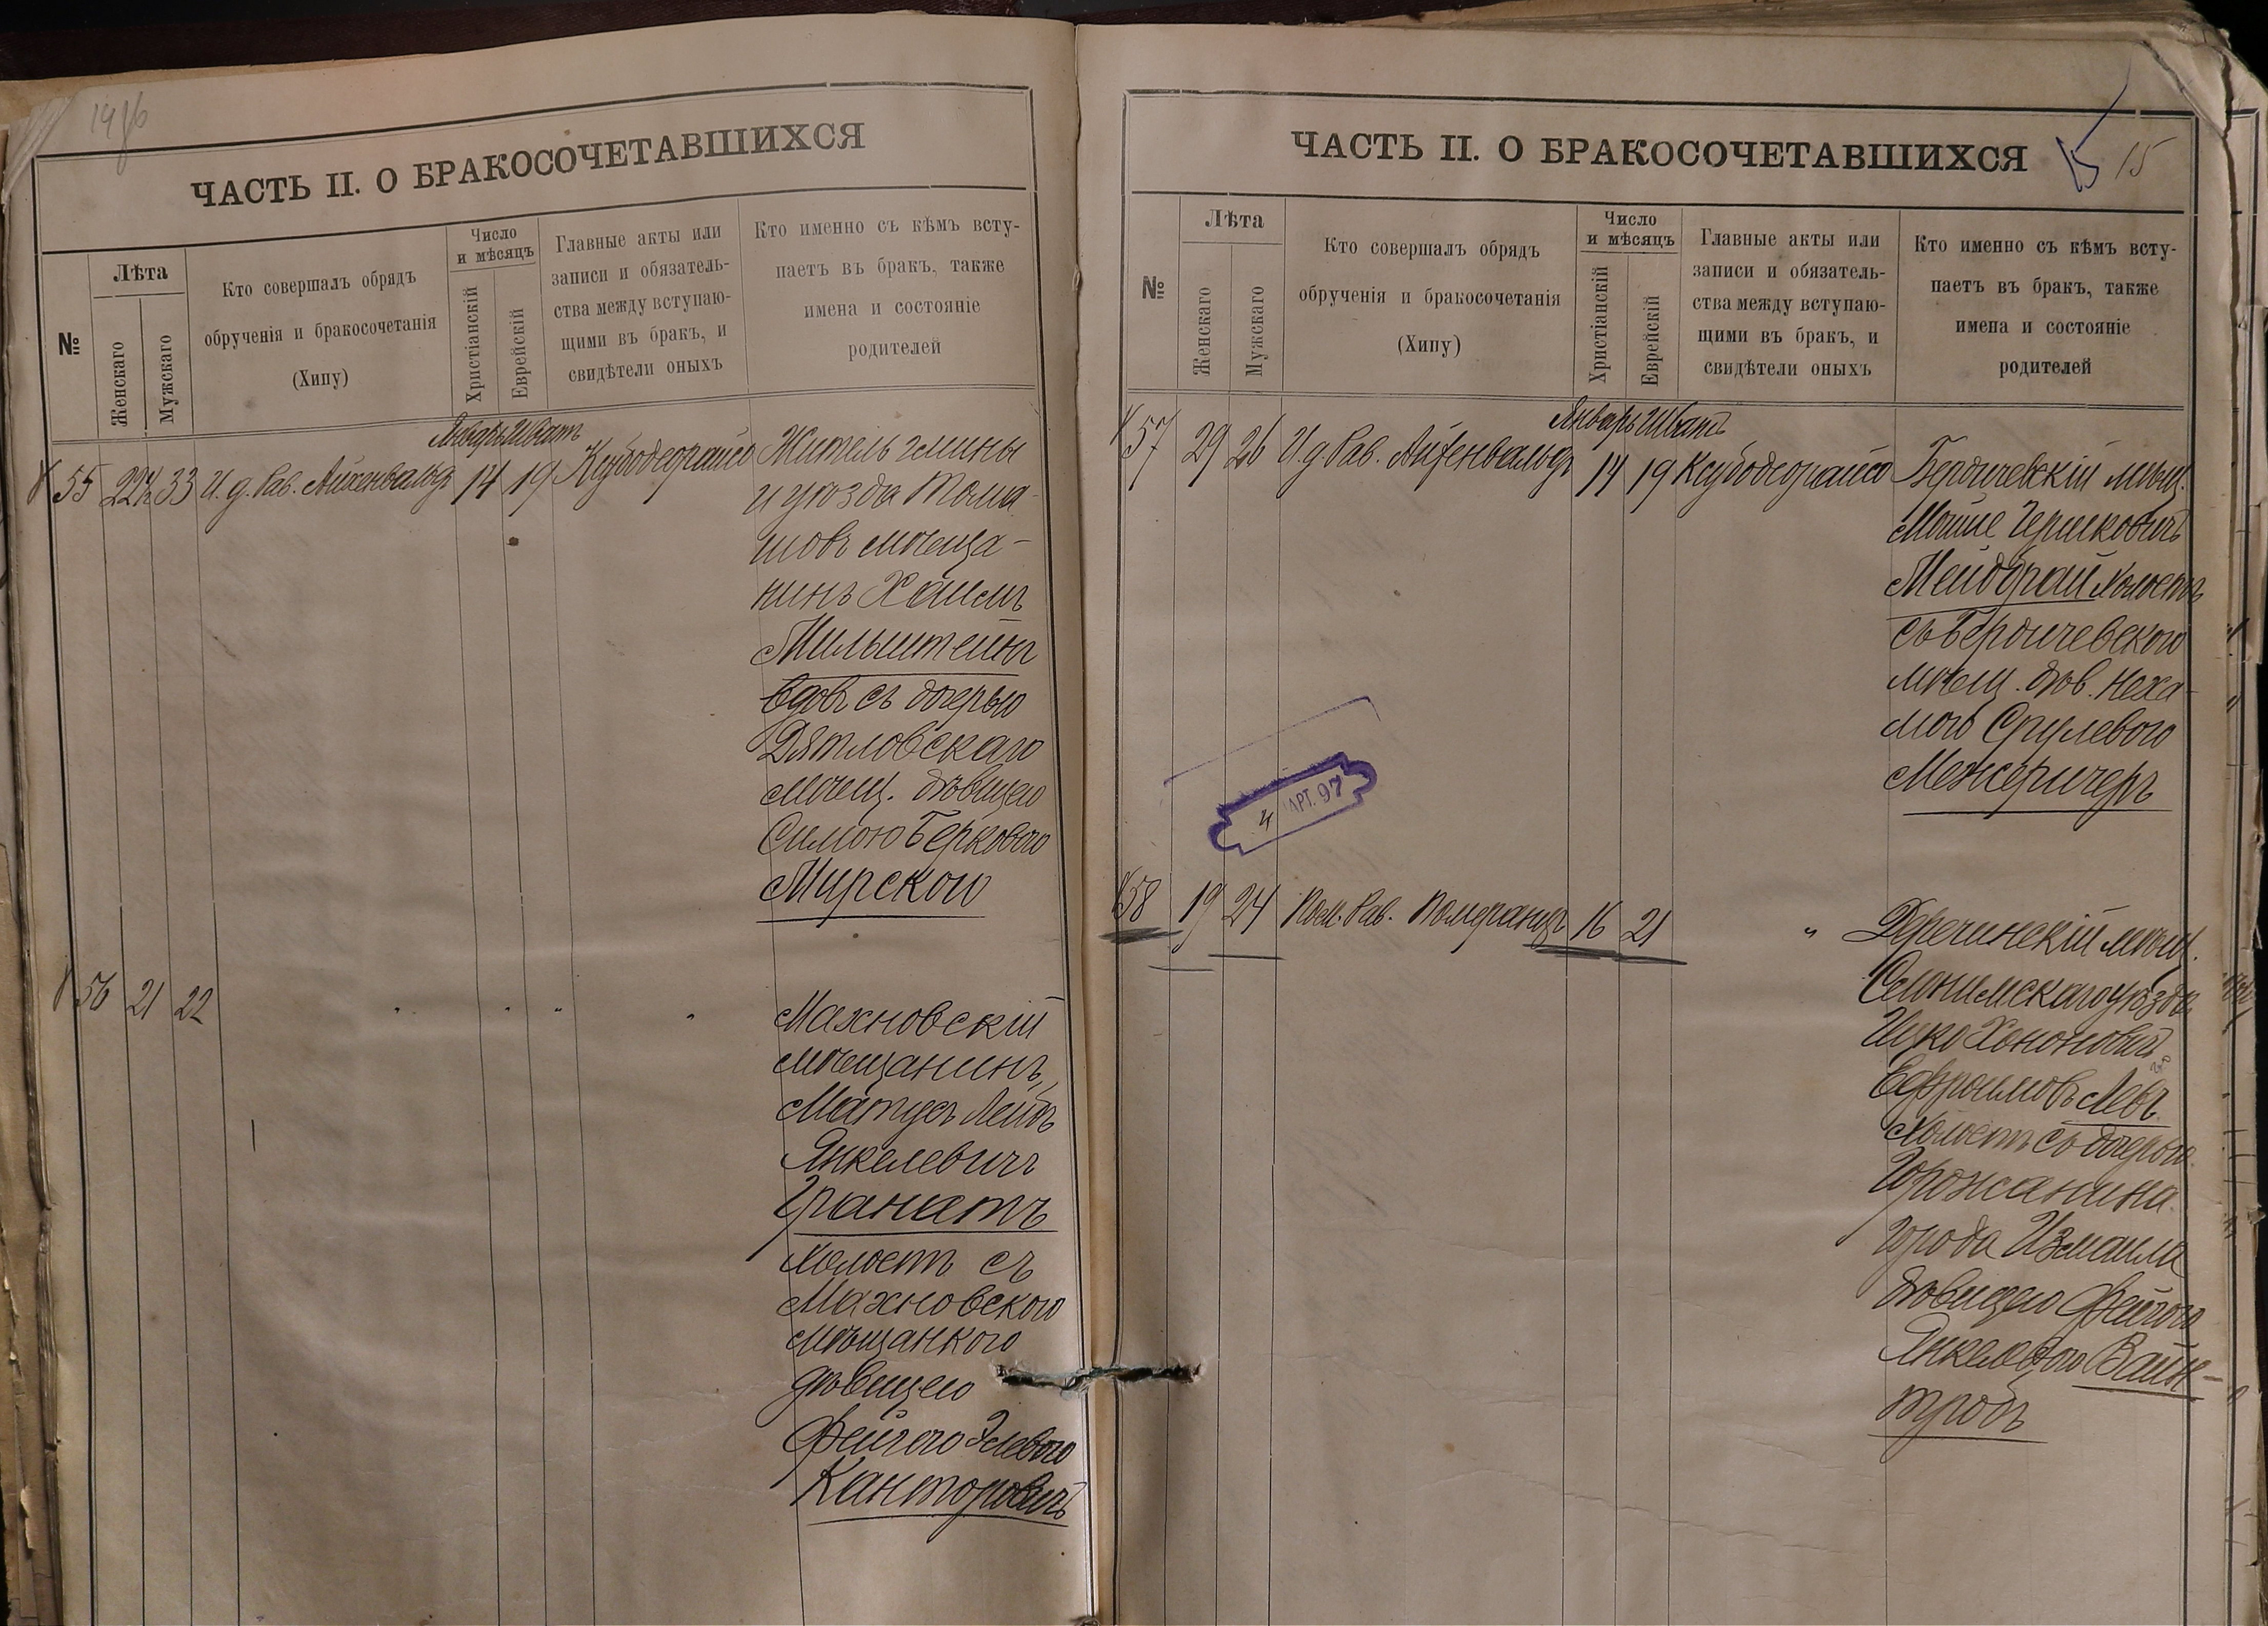 1916
ЧАСТЬ II. О БРАКОСОЧЕТАВШИХСЯ
№
Лѣта
Женскаго
Мужскаго
Кто совершалъ обрядъ
обрученія и бракосочетанія
(Хипу)
Число
и мѣсяцъ
Христіанскій
Еврейскій
Главные акты или
записи и обязатель-
ства между вступаю-
щими въ бракъ, и
свидѣтели оныхъ
Кто именно съ кѣмъ всту-
паетъ въ бракъ, также
имена и состояніе
родителей
Январь Шватъ
55 22½ 33 И. д. Рав. Айхенвальдъ 14 19 Ксубодеорайсо Житель гмины
и уѣзда Тома-
шовъ мѣща-
нинъ Хаимъ
Мильштейнъ
вдов. съ дочерью
Дятловскаго
мѣщ. дѣвицею
Симою Берковою
Мирскою
56 21 22 " " " " Махновскій
мѣщанинъ
Матусъ Лейбъ
Янкелевичъ
Гранатъ
холостъ съ
Махновскою
мѣщанкою
дѣвицею
Фейгою Элевою
Канторовичъ
ЧАСТЬ II. О БРАКОСОЧЕТАВШИХСЯ
15 15
№
Лѣта
Женскаго
Мужскаго
Кто совершалъ обрядъ
обрученія и бракосочетанія
(Хипу)
Число
и мѣсяцъ
Христіанскій
Еврейскій
Главные акты или
записи и обязатель-
ства между вступаю-
щими въ бракъ, и
свидѣтели оныхъ
Кто именно съ кѣмъ всту-
паетъ въ бракъ, также
имена и состояніе
родителей
Январь Шватъ
57 29 26 И. д. Рав. Айхенвальдъ 14 19 Ксубодеорайсо Бердичевскій мѣщ.
Мошке Гершковичъ
Мейдбрай холостъ
съ Бердичевскою
мѣщ. дѣв. Неха-
мою Срулевою
Межеричеръ
АРТ. 97
58 19 24 Пом. Рав. Померанцъ 16 21 " Дречинскій мѣщ.
Слонимскаго уѣзда
Ицко Хононовичъ
Ефроимовъ Левъ
холостъ съ дочерью
Горожанина
города Измаила
дѣвицею Фейгою
Янкелевою Вайн-
тробъ